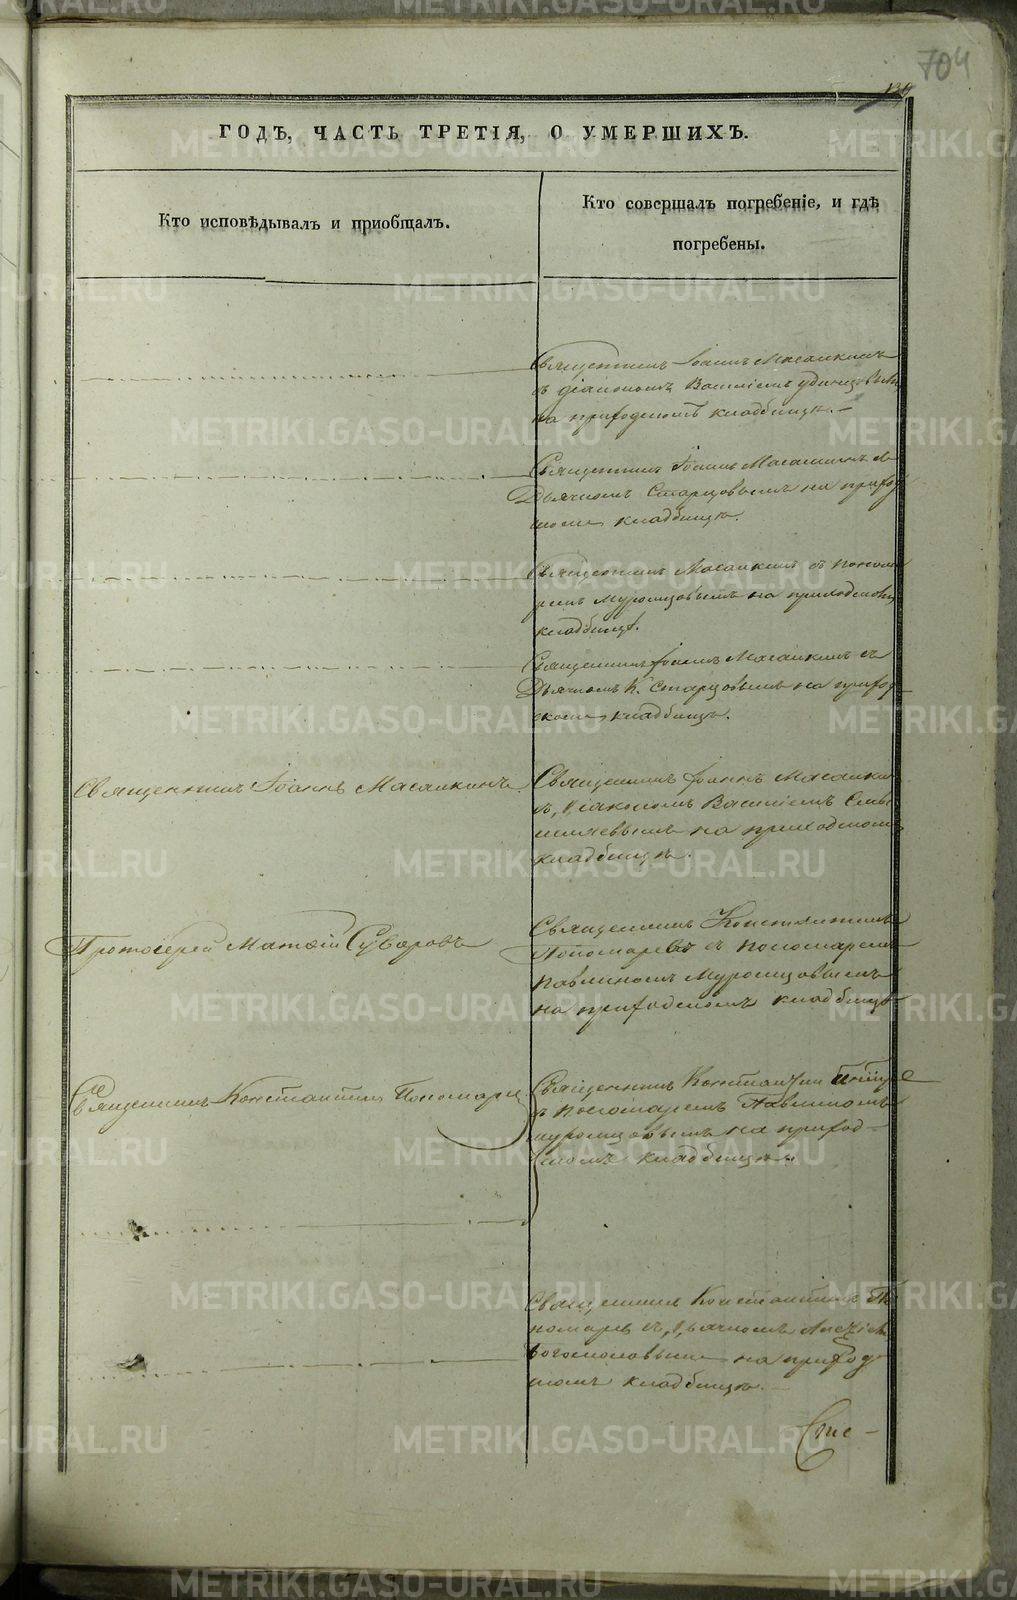 704
ГОДЪ, ЧАСТЬ ТРЕТІЯ, О УМЕРШИХЪ.
Кто исповѣдывалъ и пріобщалъ.
Кто совершалъ погребеніе, и гдѣ
погребены.
Священникъ Іоаннъ Масалкинъ
съ діакономъ Василіемъ
на приходскомъ кладбищѣ.
Священникъ Іоаннъ Масалкинъ съ
Дьячкомъ Старцовымъ на приход
скомъ кладбищѣ.
Священникъ Масалкинъ съ поном
ремъ Муромцовымъ на приходскомъ
кладбищѣ.
Священникъ Іоаннъ Масалкинъ съ
Дьячкомъ К. Старцовымъ на приход-
скомъ кладбищѣ.
Священникъ Іоаннъ Масалкинъ
Священникъ Іоаннъ Масалки
съ Діакономъ Василіемъ Смы
шляевымъ на приходскомъ
кладбищѣ.
Протоіерей Матѳій Суворовъ
Священникъ Константинъ
Пономаревъ съ пономаремъ
Павлиномъ Муромцовымъ
на приходскомъ кладбищѣ
Священникъ Константинъ Пономарев
Священникъ Константин
съ пономаремъ Павлиномъ
Муромцовымъ на приход-
скомъ кладбищѣ.
Священникъ Константинъ По
номарев съ Дьячкомъ Алексіем
Богословымъ на приход
скомъ кладбищѣ.
METRIKI.GASO-URAL.RU